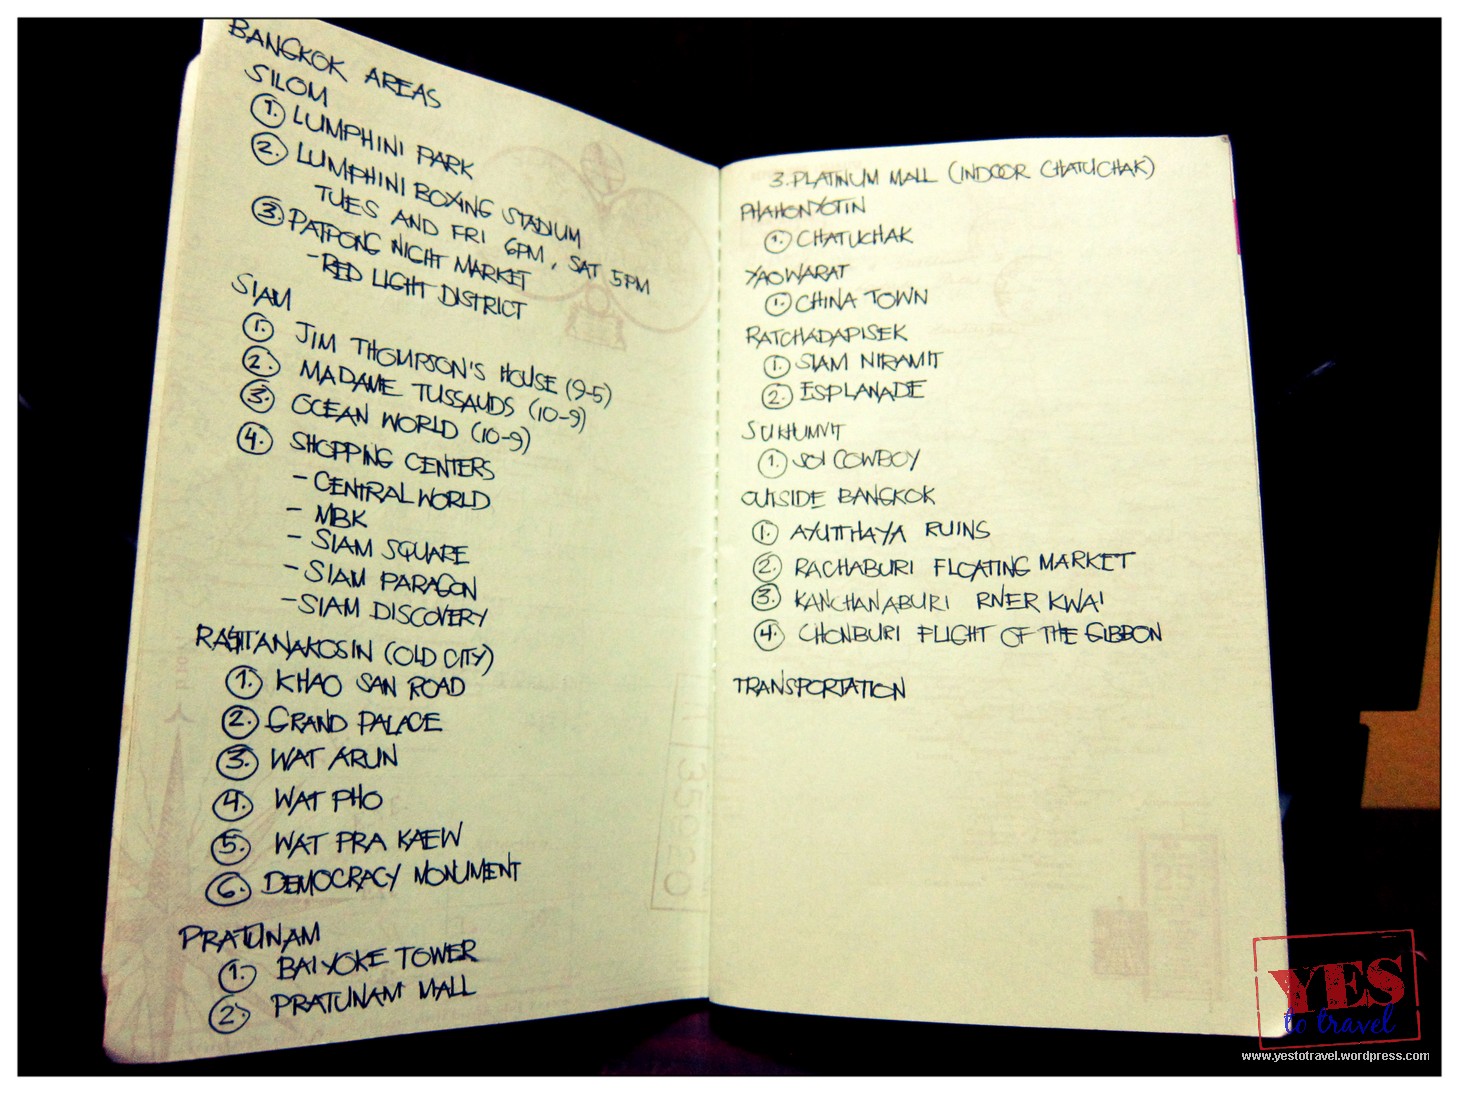 BANGKOK AREAS
SILOM
1. LUMPHINI PARK
2. LUMPHINI BOXING STADIUM
TUES AND FRI 6PM, SAT 5PM
3. PATPONG NIGHT MARKET
- RED LIGHT DISTRICT
SIAM
1. JIM THOMPSON'S HOUSE (9-5)
2. MADAME TUSSAUDS (10-9)
3. OCEAN WORLD (10-9)
4. SHOPPING CENTERS
- CENTRAL WORLD
- MBK
- SIAM SQUARE
- SIAM PARAGON
- SIAM DISCOVERY
RATTANAKOSIN (OLD CITY)
1. KHAO SAN ROAD
2. GRAND PALACE
3. WAT ARUN
4. WAT PHO
5. WAT PRA KAEW
6. DEMOCRACY MONUMENT
PRATUNAM
1. BAIYOKE TOWER
2. PRATUNAM MALL
3. PLATINUM MALL (INDOOR CHATUCHAK)
PHAHONYOTIN
1. CHATUCHAK
YAOWARAT
1. CHINA TOWN
RATCHADAPISEK
1. SIAM NIRAMIT
2. ESPLANADE
SUKHUMVIT
1. SOI COWBOY
OUTSIDE BANGKOK
1. AYUTTHAYA RUINS
2. RACHABURI FLOATING MARKET
3. KANCHANABURI RIVER KWAI
4. CHONBURI FLIGHT OF THE GIBBON
TRANSPORTATION
YES
to travel
www.yestotravel.wordpress.com